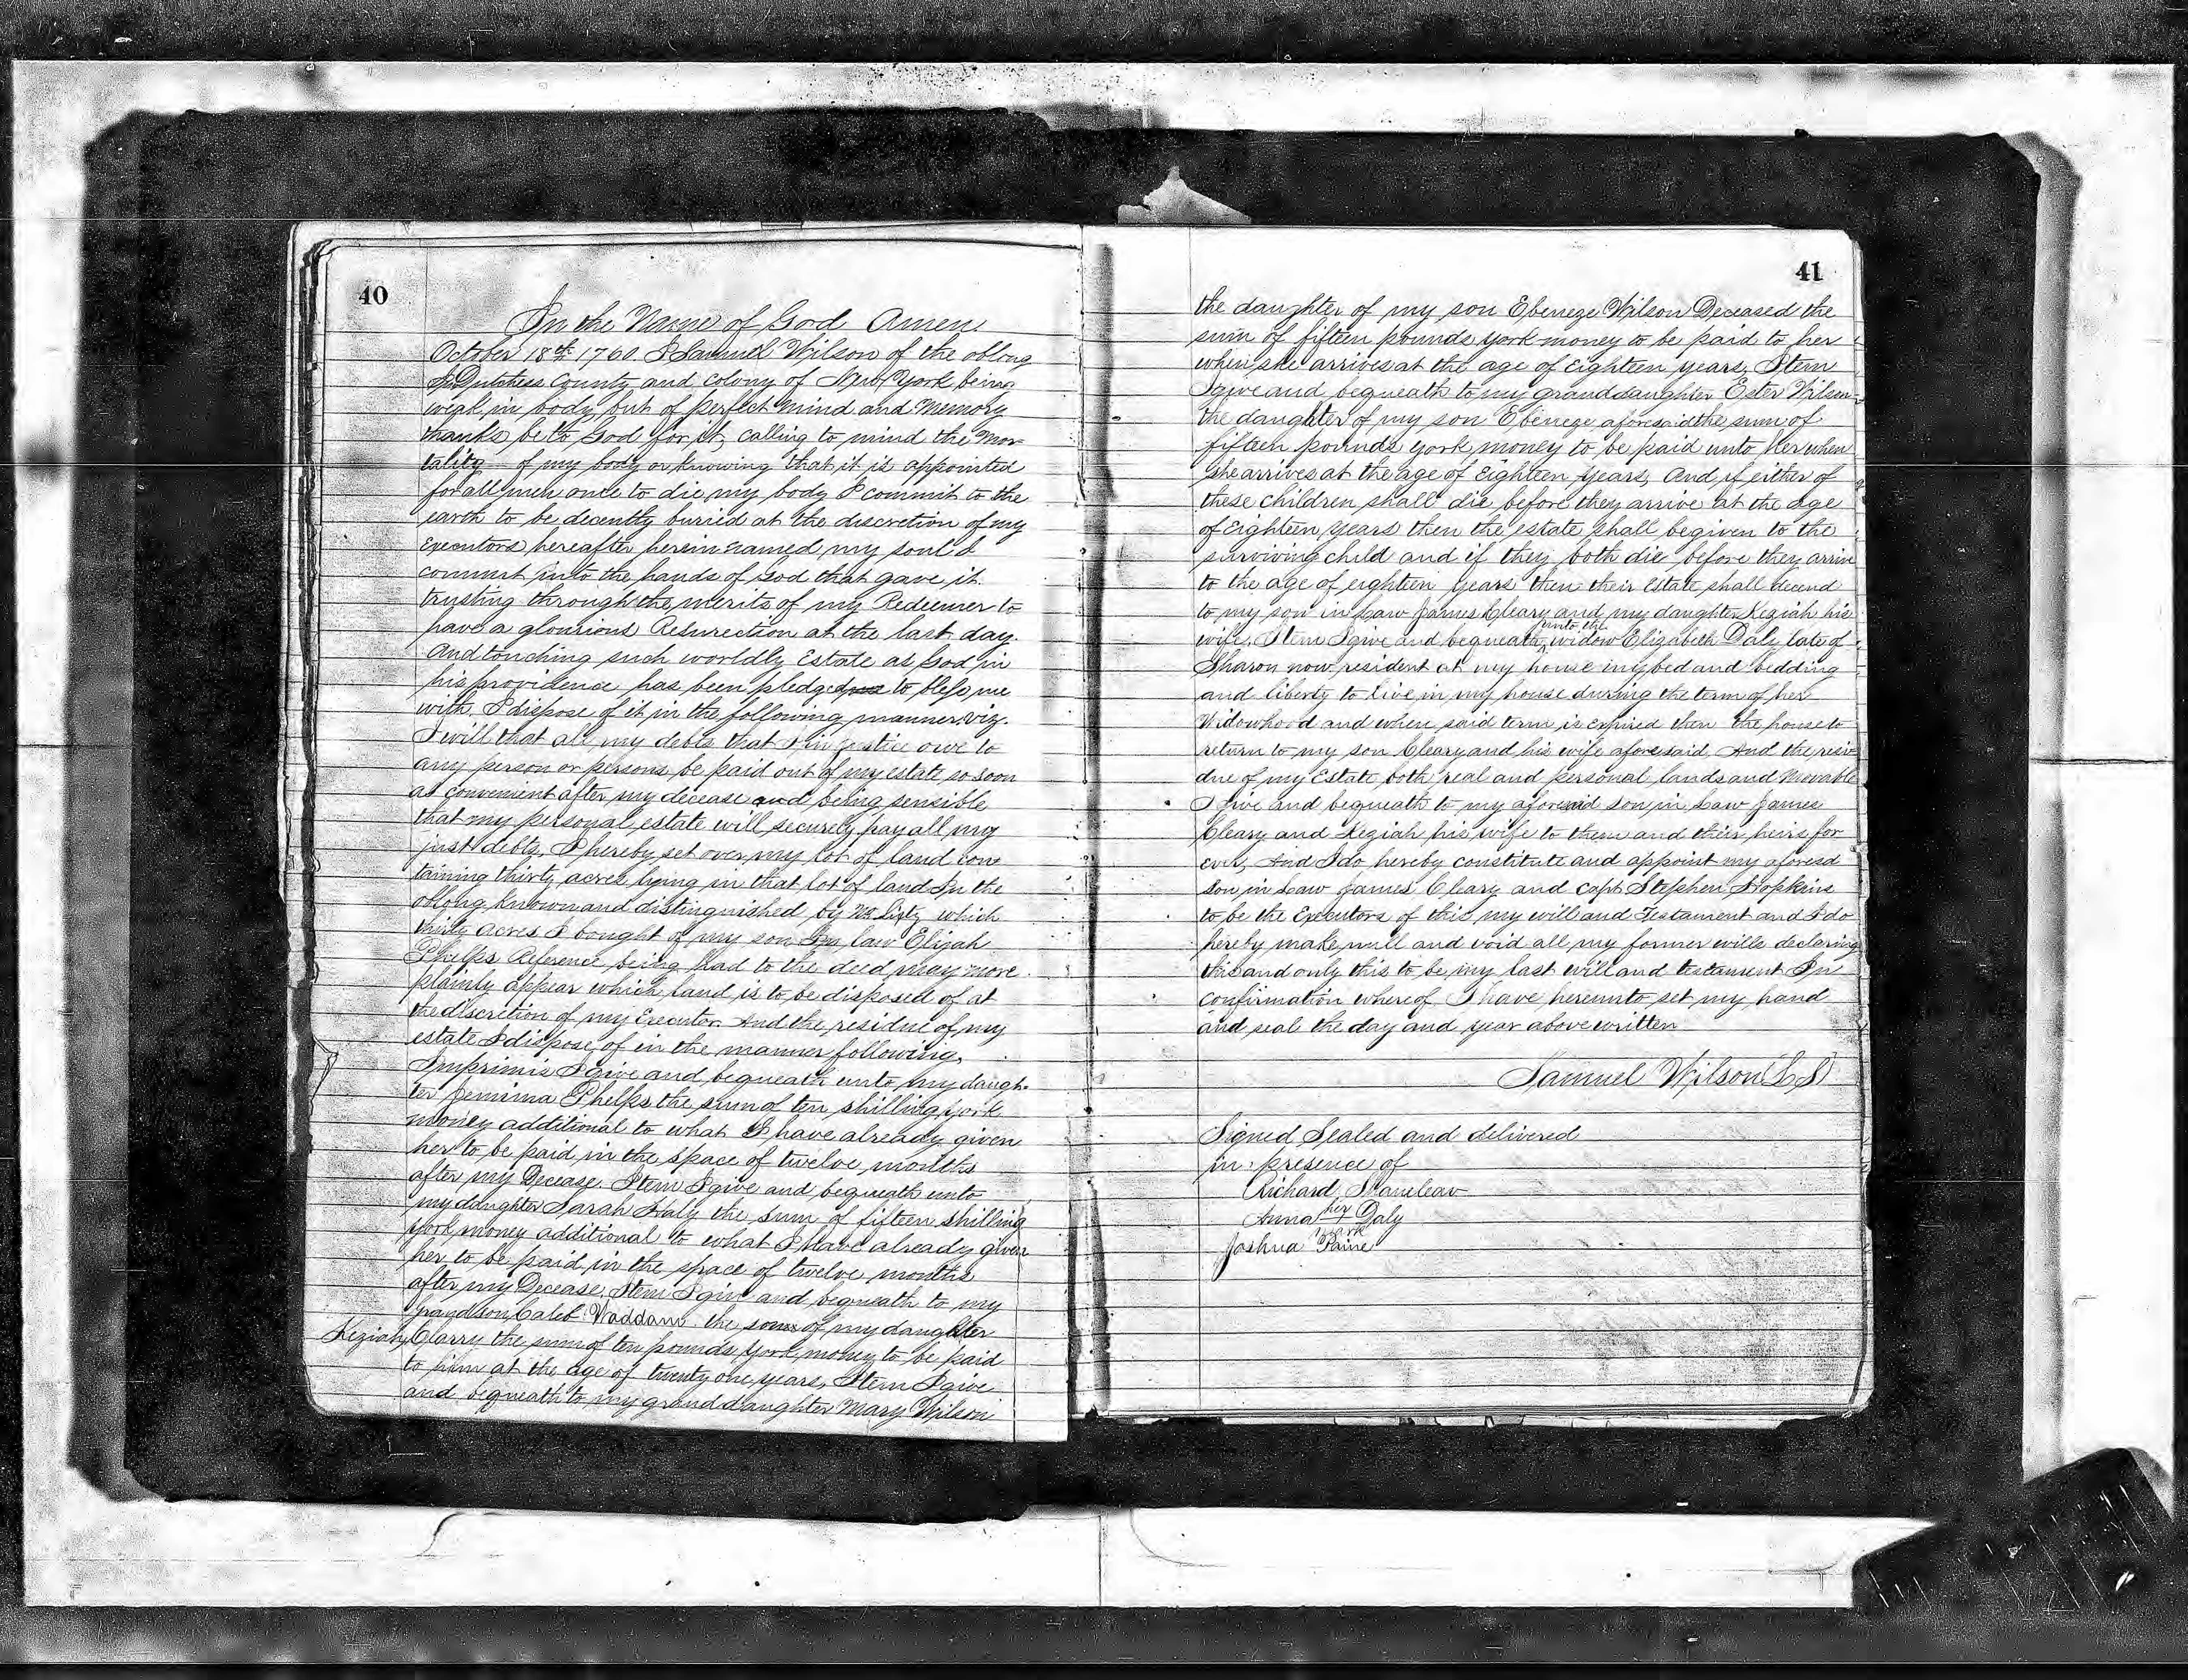 40
In the Name of God Amen
October 18th 1760 I Samuel Wilson of the oblong
In Dutchess County and colony of New York being
weak in body but of perfect mind and Memory
thanks be to God for it, calling to mind the Mor-
tality of my body or knowing that it is appointed
for all men once to die, my body I commit to the
earth to be decently buried at the discretion of my
Executors hereafter herein named my soul I
commit into the hands of God that gave it
trusting through the merits of my Redeemer to
have a glourious Resurection at the last day.
And touching such worldly Estate as God in
his providence has been pledged to bless me
with. I dispose of it in the following manner. viz.
I will that all my debts that I in justice owe to
any person or persons be paid out of my estate so soon
as convenient after my decease and being sensible
that my personal estate will securely pay all my
just debts, I hereby set over my lot of land con
taining thirty acres lying in that lot of land In the
oblong known and distinguished by No Sixty which
thirty acres I bought of my son In law Elijah
Phelps Reference being had to the deed may more
plainly appear which land is to be disposed of at
the discretion of my Executor. And the residue of my
estate I dispose of in the manner following,
Imprimis I give and bequeath unto my daugh-
ter Jemima Phelps the sum of ten shilling york
money additional to what I have already given
her to be paid in the space of twelve months
after my Decease. Item I give and bequeath unto
my daughter Sarah Haly the sum of fifteen shilling
York money additional to what I have already given
her to be paid in the space of twelve months
after my Decease, Item I give and bequeath to my
grand son Caleb Waddams the son of my daughter
Keziah Clarry the sum of ten pounds York money to be paid
to him at the age of twenty one years, Item I give
and bequeath to my grand daughter Mary Wilson
41
the daughter of my son Ebeneze Wilson Deceased the
sum of fifteen pounds york money to be paid to her
when she arrives at the age of Eighteen years, Item
I give and bequeath to my granddaughter Ester Wilson
the daughter of my son Ebeneze aforesaid the sum of
fifteen pounds york money to be paid unto her when
she arrives at the age of Eighteen years, And if either of
these children shall die before they arrive at the age
of Eighteen years then the estate shall be given to the
surviving child and if they both die before they arrive
to the age of eighteen years then their Estate shall decend
to my son in Law James Cleary and my daughter Keziah his
wife, Item I give and bequeath unto the widow Elizabeth Daly late of
Sharon now resident at my house my bed and bedding
and liberty to live in my house during the term of her
Widowhood and when said term is expired then the house to
return to my son Cleary and his wife aforesaid And the resi-
due of my Estate both real and personal lands and Movable
I give and bequeath to my aforesaid son in Law James
Cleary and Keziah his wife to them and their heirs for
ever, And I do hereby constitute and appoint my aforesd
son in Law James Cleary and Capt Stephen Hopkins
to be the Executors of this my will and Testament and I do
hereby make null and void all my former wills declaring
this and only this to be my last will and testament In
confirmation whereof I have hereunto set my hand
and seal the day and year above written
Samuel Wilson (LS)
Signed Sealed and delivered
in presence of
Richard
Anna her Daly
mark
Joshua Paine